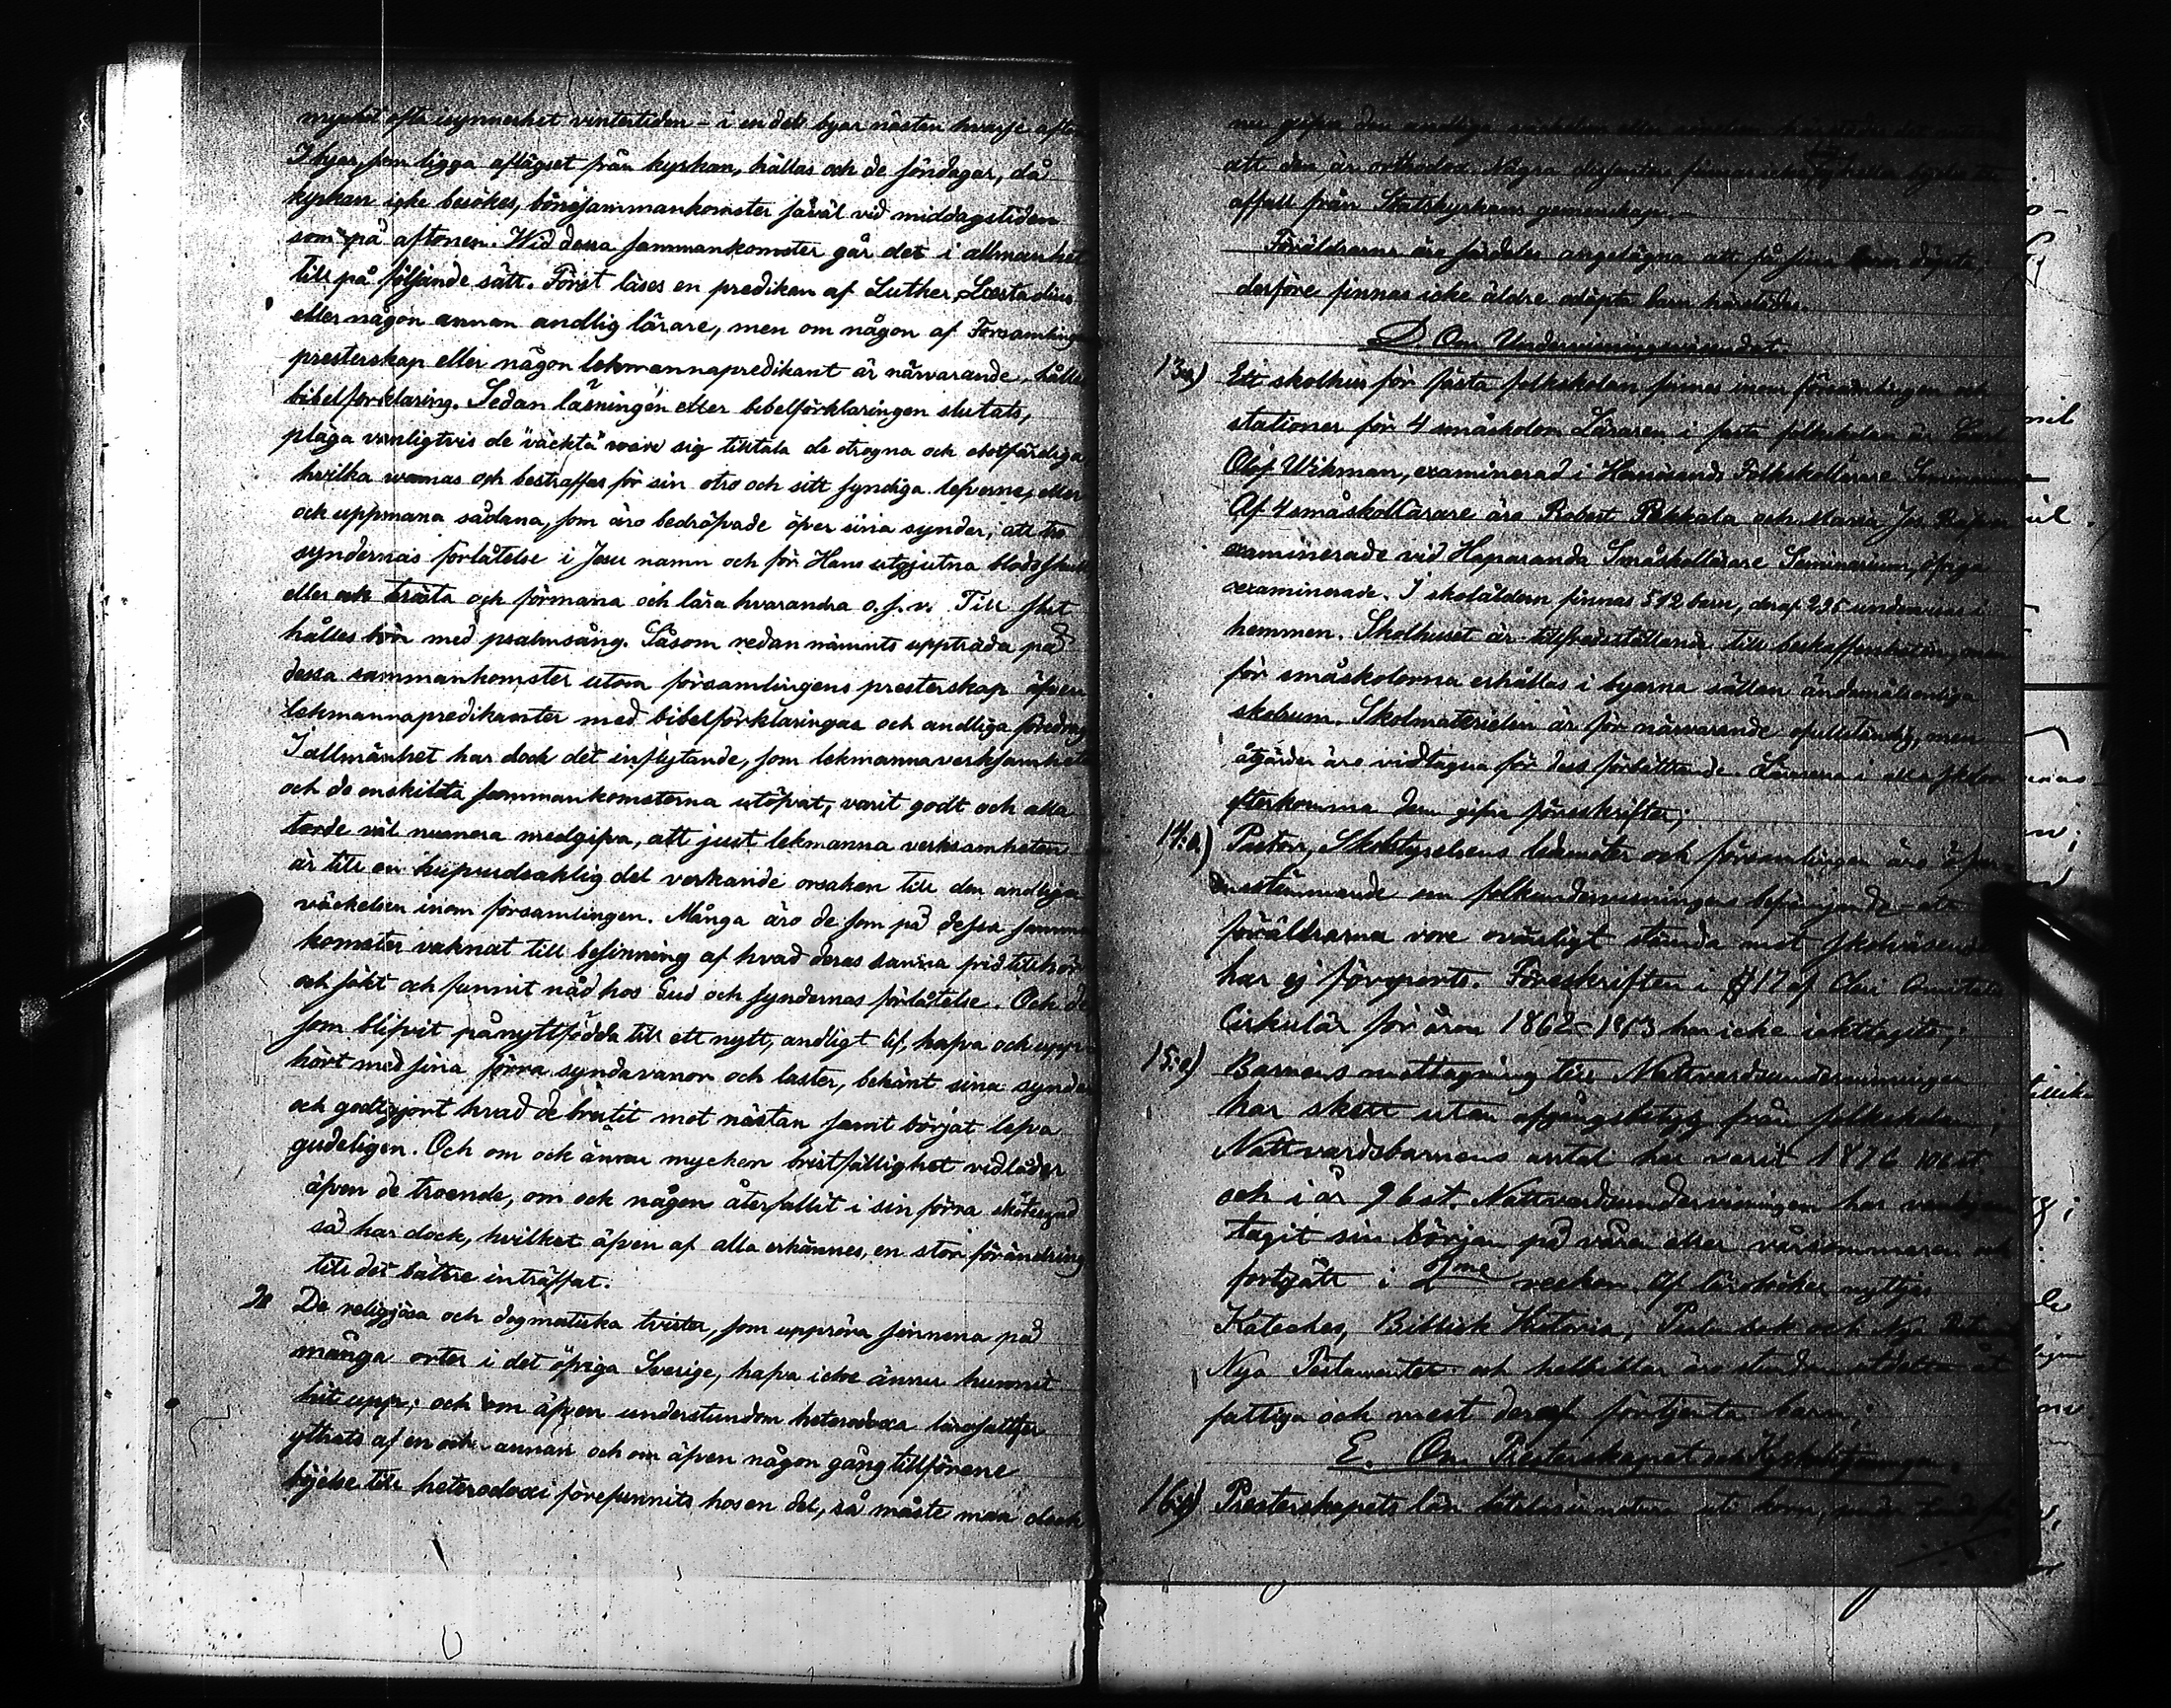 mycket ofta isynnerhet vintertiden - i en del byar nästan hvarje afton
I byar, som ligga aflägset från kyrkan, hållas och de söndagar, då
kyrkan icke besökes, bönesammankomster såväl vid middagstiden
som på aftonen. Wid dessa sammankomster går det i allmänhet
till på följande sätt. Först läses en predikan af Luther, Læstadius
eller någon annan andlig lärare, men om någon af Församlingens
presterskap eller någon lekmannapredikant är närvarande, hålles
bibelförklaring. Sedan läsningen eller bibelförklaringen slutats,
pläga vanligtvis de "väckta" sig tilltala de otrogna och obotfärdiga
hvilka varnas och bestraffas för sin otro och sitt syndiga lefverne, eller
ock uppmana sådana, som äro bedröfvade öfver sina synder, att tro
syndernas förlåtelse i Jesu namn och för Hans utgjutna blods skull
eller ock trösta och förmana och lära hvarandra o.s.v. Till slut
hålles bön med psalmsång. Såsom redan nämnts uppträda på
dessa sammankomster utom församlingens presterskap äfven
lekmannapredikanter med bibelförklaringar och andliga föredrag
I allmänhet har dock det inflytande, som lekmannaverksamheten
och de enskilda sammankomsterna utöfvat, varit godt och alla
torde väl numera medgifva, att just lekmanna verksamheten
är till en hufvudsaklig del verkande orsaken till den andliga
väckelsen inom församlingen. Många äro de som på dessa samman
komster vaknat till besinning af hvad deras sanna frid tillhör
och sökt och funnit nåd hos Gud och syndernas förlåtelse. Och de
som blifvit pånyttfödda till ett nytt, andligt lif, hafva ock upp-
hört med sina förra syndavanor och laster, bekänt sina synder
och godtgjort hvad de brutit mot nästan samt börjat lefva
gudeligen. Och om ock ännu mycken bristfällighet vidlåder
äfven de troende, om ock någon återfallit i sin förra
så har dock, hvilket äfven af alla erkännes, en stor förändring
till det bättre inträffat.
De religiösa och dogmatiska tvister, som uppröra sinnena på
många orter i det öfriga Sverige, hafva icke ännu hunnit
hit upp; och om äfven understundom heterodoxa lärosatser
yttrats af en och annan och om äfven någon gång tillförene
böjelse till heterodoxi förefunnits hos en del, så måste man dock
den andliga
att den är orthodox. Några
affall från Statskyrkans gemenskap.-
Föräldrarne äro särdeles angelägna att få sina barn döpta,
derföre finnas icke äldre odöpta barn härstädes.
D. Om Undervisningsväsendet.
13:o) Ett skolhus för fasta folkskolan finnes inom församlingen och
stationer för 4 småskolor. Läraren i fasta folkskolan är Carl
Olof Wikman, examinerad i Hernösands Folkskollärare Seminarium
Af 4 småskollärare äro Robert Pekkala och Maria Jos.
examinerade vid Haparanda Småskollärare Seminarium, öfriga
oexaminerade. I skolåldern finnas 512 barn, deraf 235 undervisas i
hemmen. Skolhuset är tillfredsställande till beskaffenheten, men
för småskolorna erhållas i byarna sällan ändamålsenliga
skolrum. Skolmaterielen är för närvarande ofullständig, men
åtgärder äro vidtagna för dess förbättrande. Lärarena i alla skolor
efterkomma dem gifna föreskrifter;
14:o) Pastor, Skolstyrelsens ledamöter och församlingen äro öfver-
ensstämmande om folkundervisningens befrämjande - att
föräldrarna vore ovänligt stämda mot skolväsendet
har ej försports. Föreskriften i § 17 af
Cirkulär för åren 1862-1863 har icke iakttagits;
15:o) Barnens mottagning till Nattvardsundervisningen
har skett utan afgångsbetyg från folkskolan;
Nattvardsbarnens antal har varit 1876 106 st.
och i år 96 st. Nattvardsundervisningen har vanligen
tagit sin början på våren eller vårsommaren och
fortgått i veckor. Af läroböcker nyttjas
Kateches, Biblisk Historia, Psalmbok och Nya
Nya Testamenter och helbiblar äro utdelta åt
fattiga och mest deraf förtjenta barn;
E. Om Presterskapet och Kyrkobetjeningen.
16:o) Presterskapets